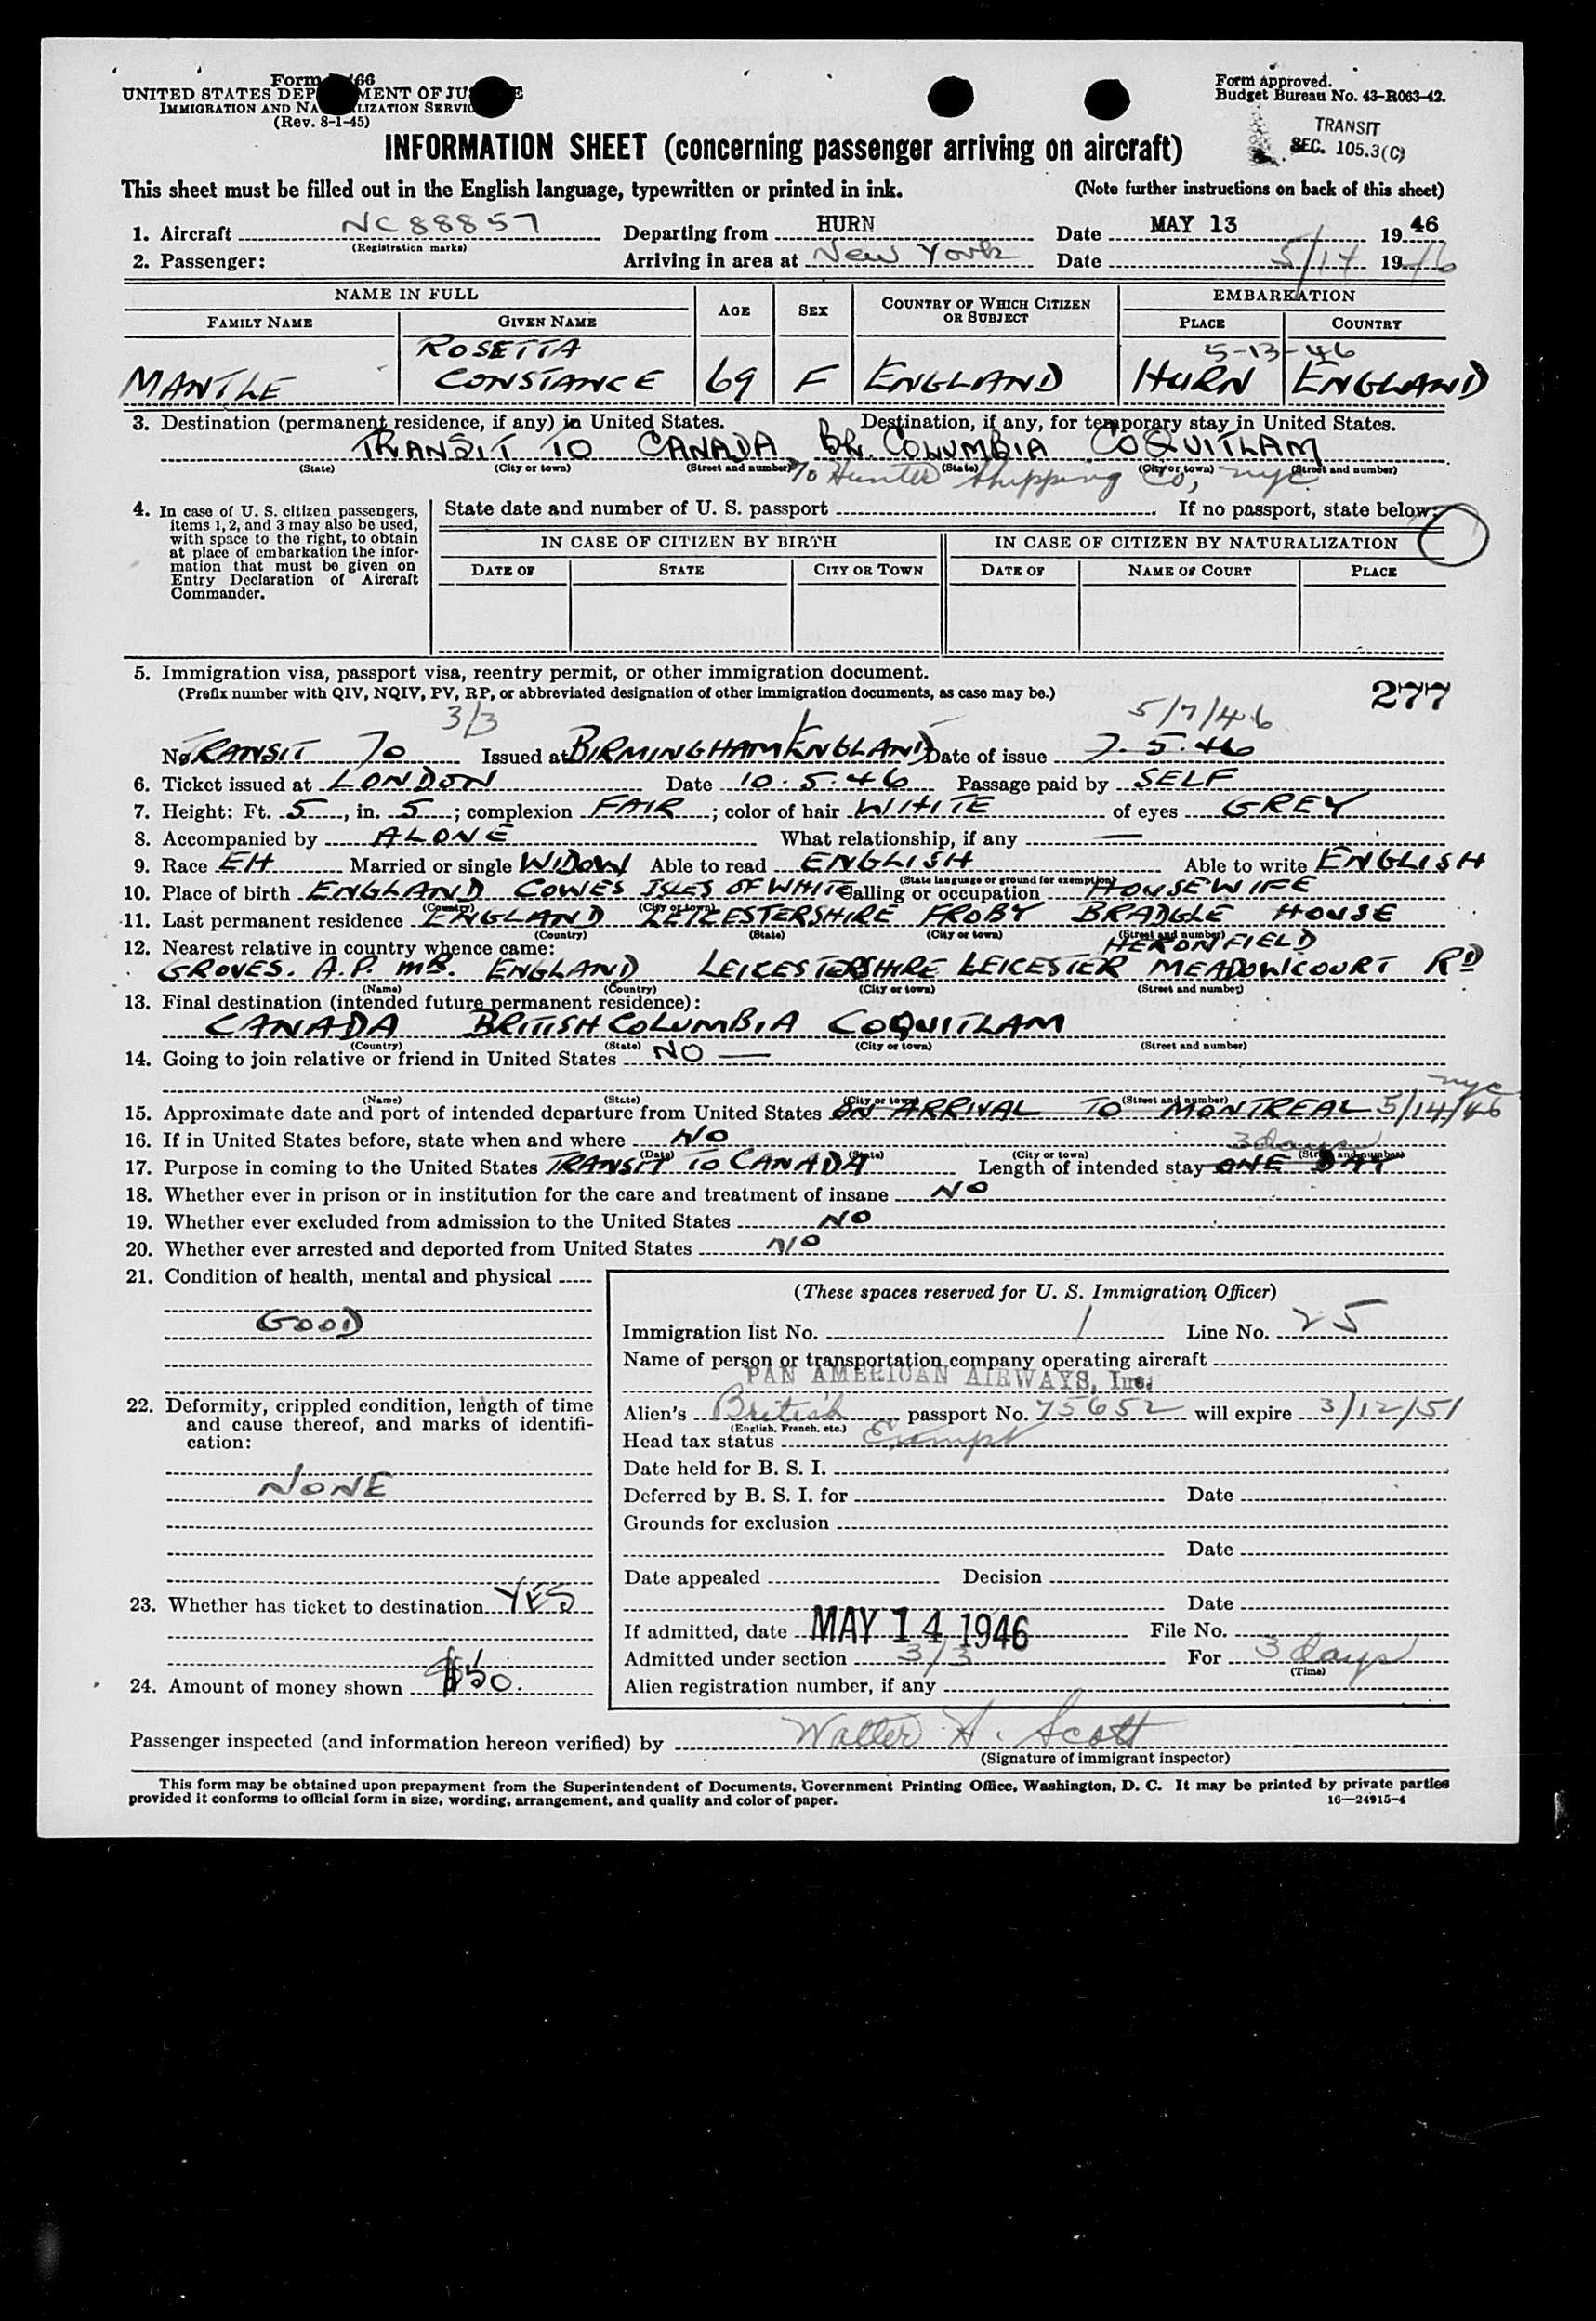 Form 466
UNITED STATES DEPARTMENT OF JUSTICE
IMMIGRATION AND NATURALIZATION SERVICE
(Rev. 8-1-45)
Form approved.
Budget Bureau No. 43-R063-42.
TRANSIT
SEC. 105.3(C)
INFORMATION SHEET (concerning passenger arriving on aircraft)
This sheet must be filled out in the English language, typewritten or printed in ink. (Note further instructions on back of this sheet)
1. Aircraft NC 88857 Departing from HURN Date MAY 13 1946
(Registration marks)
2. Passenger: Arriving in area at New York Date 5/14 1946
NAME IN FULL AGE SEX COUNTRY OF WHICH CITIZEN OR SUBJECT EMBARKATION
FAMILY NAME GIVEN NAME PLACE COUNTRY
ROSETTA 5-13-46
MANTLE CONSTANCE 69 F ENGLAND HURN ENGLAND
3. Destination (permanent residence, if any) in United States. Destination, if any, for temporary stay in United States.
TRANSIT TO CANADA Br. COLUMBIA COQUITLAM
(State) (City or town) (Street and number) (State) (City or town) (Street and number)
% Hunter Shipping Co, nyc
4. In case of U. S. citizen passengers, items 1, 2, and 3 may also be used, with space to the right, to obtain at place of embarkation the information that must be given on Entry Declaration of Aircraft Commander.
State date and number of U. S. passport . If no passport, state below:
IN CASE OF CITIZEN BY BIRTH IN CASE OF CITIZEN BY NATURALIZATION
DATE OF STATE CITY OR TOWN DATE OF NAME OF COURT PLACE
5. Immigration visa, passport visa, reentry permit, or other immigration document.
(Prefix number with QIV, NQIV, PV, RP, or abbreviated designation of other immigration documents, as case may be.)
277
3/3 5/7/46
No. TRANSIT 70 Issued at BIRMINGHAM ENGLAND Date of issue 7.5.46
6. Ticket issued at LONDON Date 10.5.46 Passage paid by SELF
7. Height: Ft. 5, in. 5; complexion FAIR; color of hair WHITE of eyes GREY
8. Accompanied by ALONE What relationship, if any —
9. Race EH Married or single WIDOW Able to read ENGLISH Able to write ENGLISH
(State language or ground for exemption)
10. Place of birth ENGLAND COWES ISLES OF WHITE Calling or occupation HOUSEWIFE
(Country) (City or town)
11. Last permanent residence ENGLAND LEICESTERSHIRE FROBY BRADGLE HOUSE
(Country) (State) (City or town) (Street and number)
12. Nearest relative in country whence came: HERONFIELD
GROVES. A.P. MRS. ENGLAND LEICESTERSHIRE LEICESTER MEADOWCOURT RD
(Name) (Country) (City or town) (Street and number)
13. Final destination (intended future permanent residence):
CANADA BRITISH COLUMBIA COQUITLAM
(Country) (State) (City or town) (Street and number)
14. Going to join relative or friend in United States NO —
nyc
(Name) (State) (City or town) (Street and number)
15. Approximate date and port of intended departure from United States ON ARRIVAL TO MONTREAL 5/14/46
16. If in United States before, state when and where NO
3 days
(Date) (State) (City or town) (Street and number)
17. Purpose in coming to the United States TRANSIT TO CANADA Length of intended stay ONE DAY
18. Whether ever in prison or in institution for the care and treatment of insane NO
19. Whether ever excluded from admission to the United States NO
20. Whether ever arrested and deported from United States NO
21. Condition of health, mental and physical
GOOD
22. Deformity, crippled condition, length of time and cause thereof, and marks of identification:
NONE
23. Whether has ticket to destination YES
24. Amount of money shown $50.
(These spaces reserved for U. S. Immigration Officer)
Immigration list No. 1 Line No. 25
Name of person or transportation company operating aircraft
PAN AMERICAN AIRWAYS, Inc.
Alien's British passport No. 75652 will expire 3/12/51
(English, French, etc.)
Head tax status Exempt
Date held for B. S. I.
Deferred by B. S. I. for Date
Grounds for exclusion
Date
Date appealed Decision
Date
If admitted, date MAY 14 1946 File No.
Admitted under section 3/3 For 3 days
(Time)
Alien registration number, if any
Passenger inspected (and information hereon verified) by Walter A. Scott
(Signature of immigrant inspector)
This form may be obtained upon prepayment from the Superintendent of Documents, Government Printing Office, Washington, D. C. It may be printed by private parties
provided it conforms to official form in size, wording, arrangement, and quality and color of paper. 16—24915-4